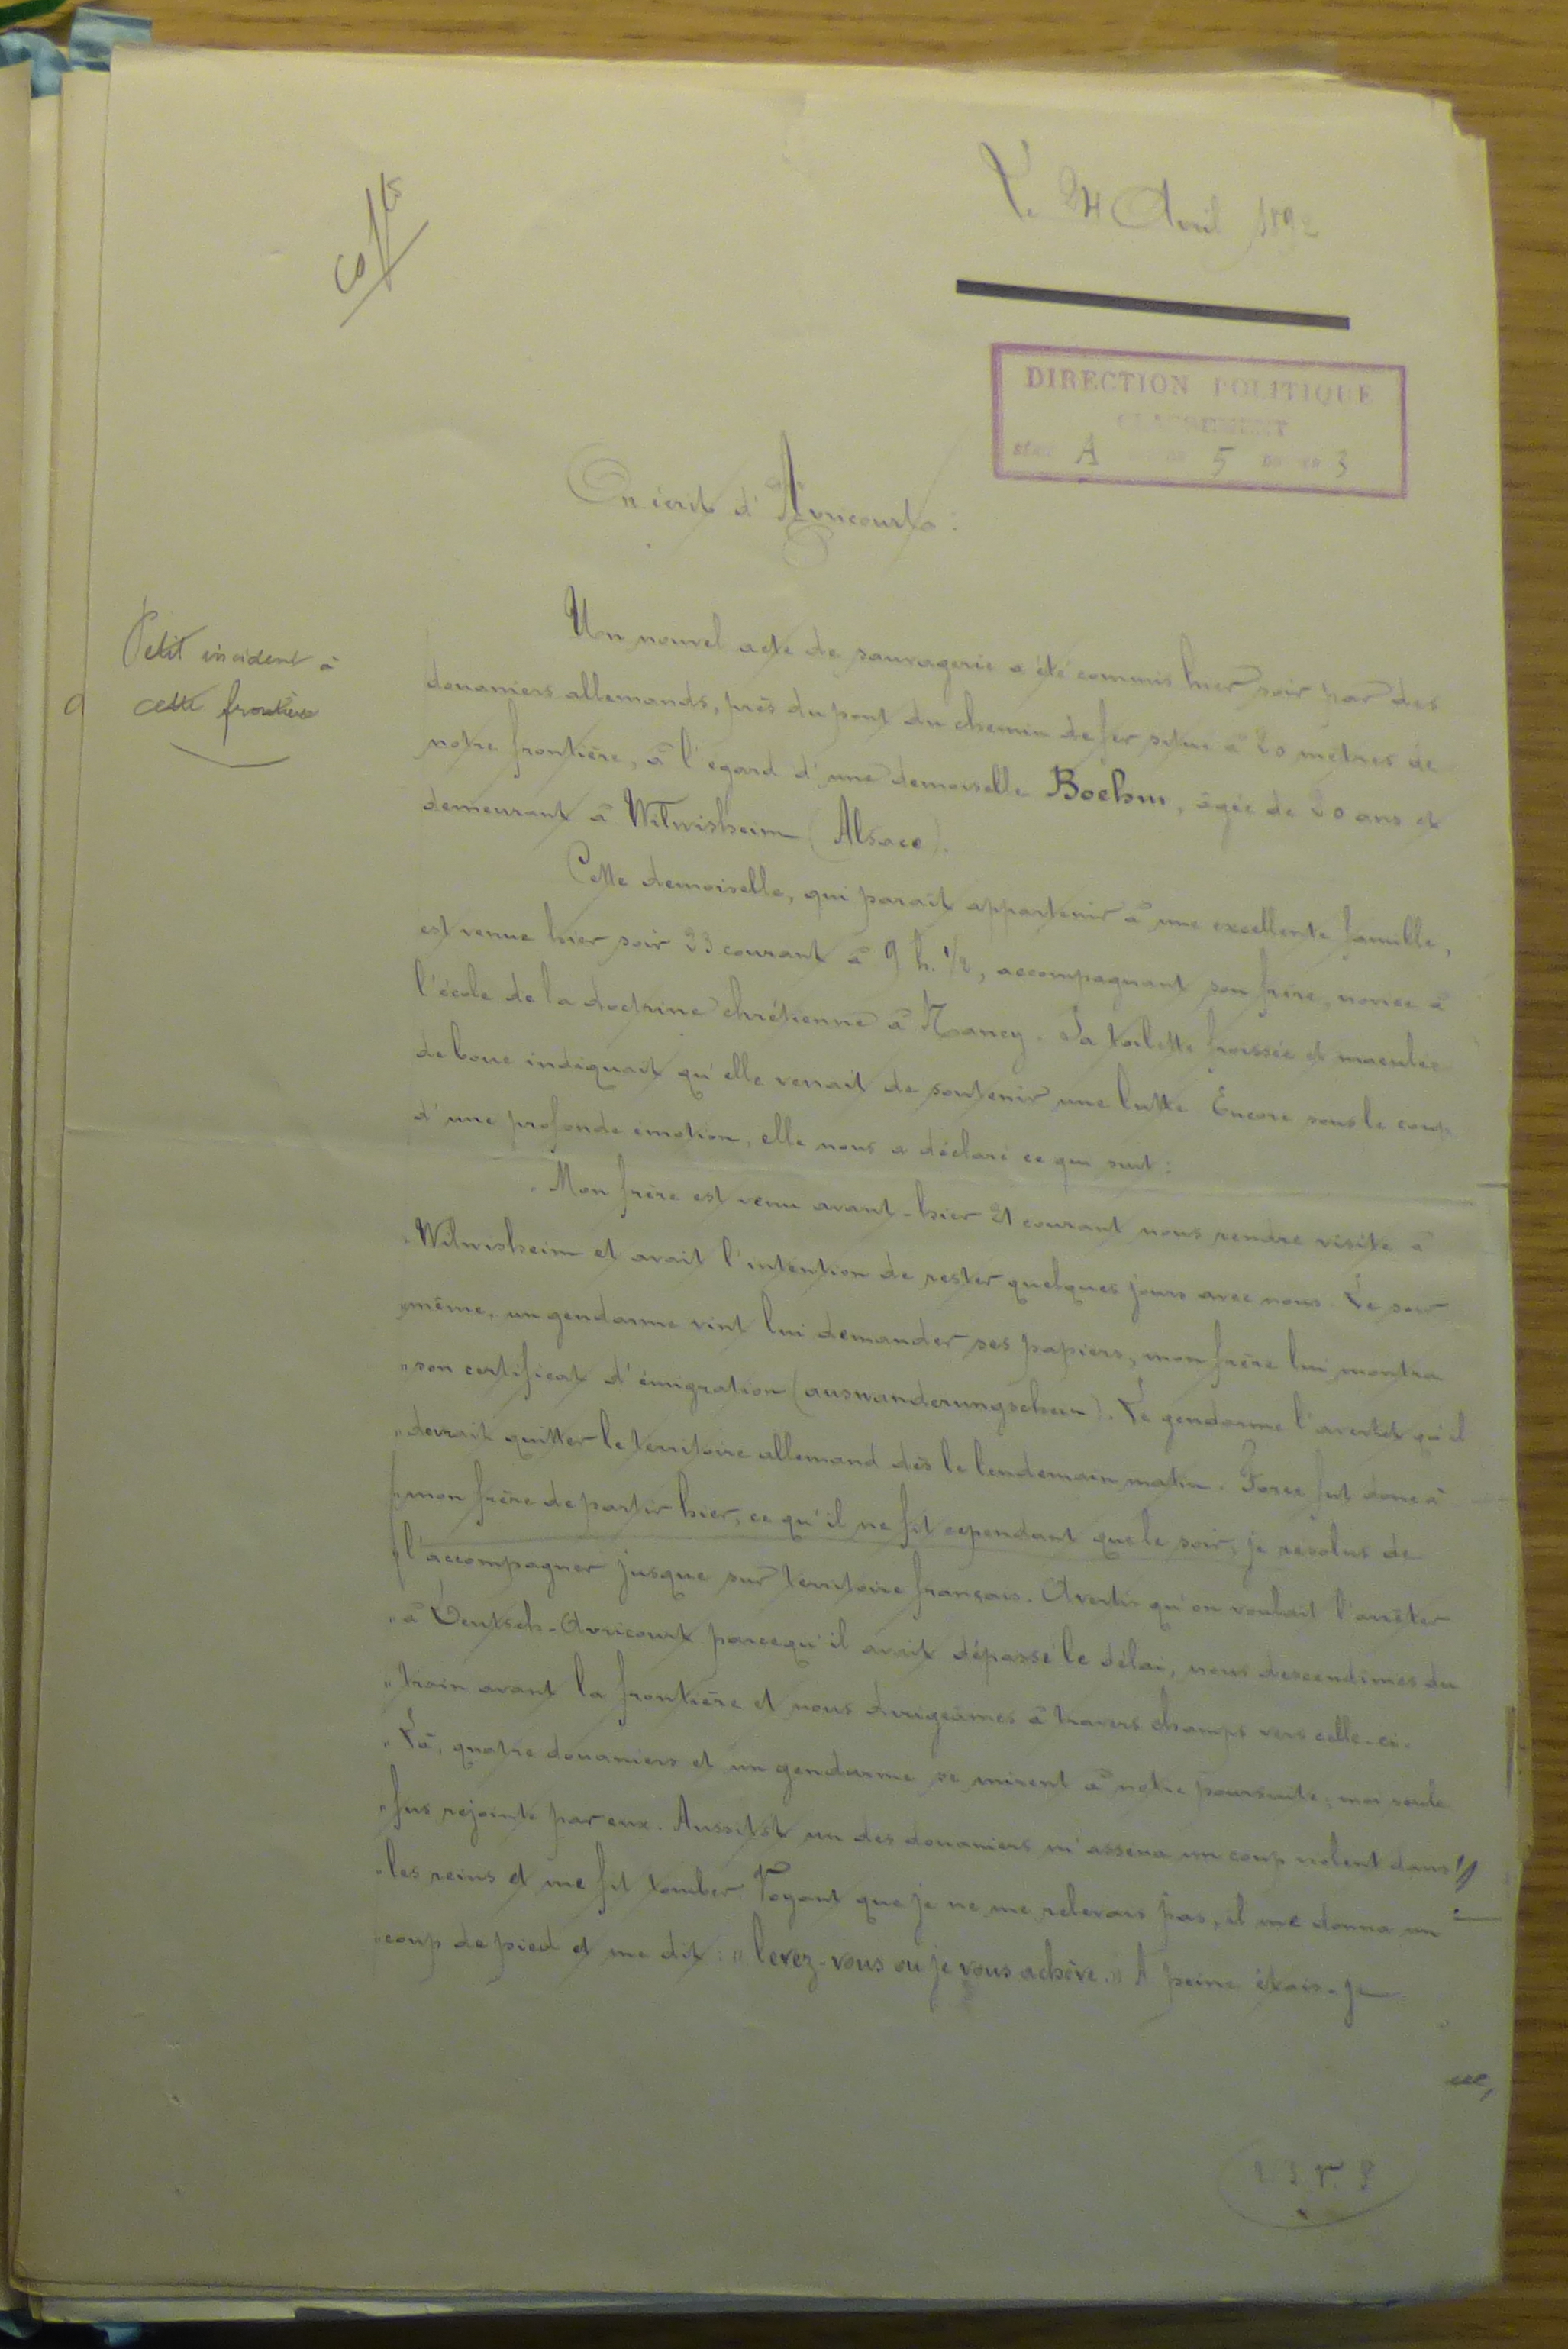 Le 24 Avril 1892
DIRECTION POLITIQUE
CLASSEMENT
A 5 3
On écrit d'Avricourt :
Petit incident à
cette frontière
Un nouvel acte de sauvagerie a été commis hier soir par des
douaniers allemands, près du pont du chemin de fer situé à 20 mètres de
notre frontière, à l'égard d'une demoiselle Boehm, âgée de 20 ans et
demeurant à Wilwisheim (Alsace).
Cette demoiselle, qui paraît appartenir à une excellente famille,
est venue hier soir 23 courant à 9 h. 1/2, accompagnant son frère, novice à
l'école de la doctrine chrétienne à Nancy. Sa toilette froissée et maculée
de boue indiquait qu'elle venait de soutenir une lutte. Encore sous le coup
d'une profonde émotion, elle nous a déclaré ce qui suit :
"Mon frère est venu avant-hier 21 courant nous rendre visite à
"Wilwisheim et avait l'intention de rester quelques jours avec nous. Le soir
"même, un gendarme vint lui demander ses papiers, mon frère lui montra
"son certificat d'émigration (auswanderungschein). Le gendarme l'avertit qu'il
"devrait quitter le territoire allemand dès le lendemain matin. Force fut donc à
"mon frère de partir hier, ce qu'il ne fit cependant que le soir; je resolus de
"l'accompagner jusque sur territoire français. Avertis qu'on voulait l'arrêter
"à Deutsch-Avricourt parcequ'il avait dépassé le délai, nous descendîmes du
"train avant la frontière et nous dirigeâmes à travers champs vers celle-ci.
"Là, quatre douaniers et un gendarme se mirent à notre poursuite; moi seule
"fus rejointe par eux. Aussitôt un des douaniers m'asséna un coup violent dans
"les reins et me fit tomber. Voyant que je ne me relevais pas, il me donna un
"coup de pied et me dit : "levez-vous ou je vous achève." A peine étais-je